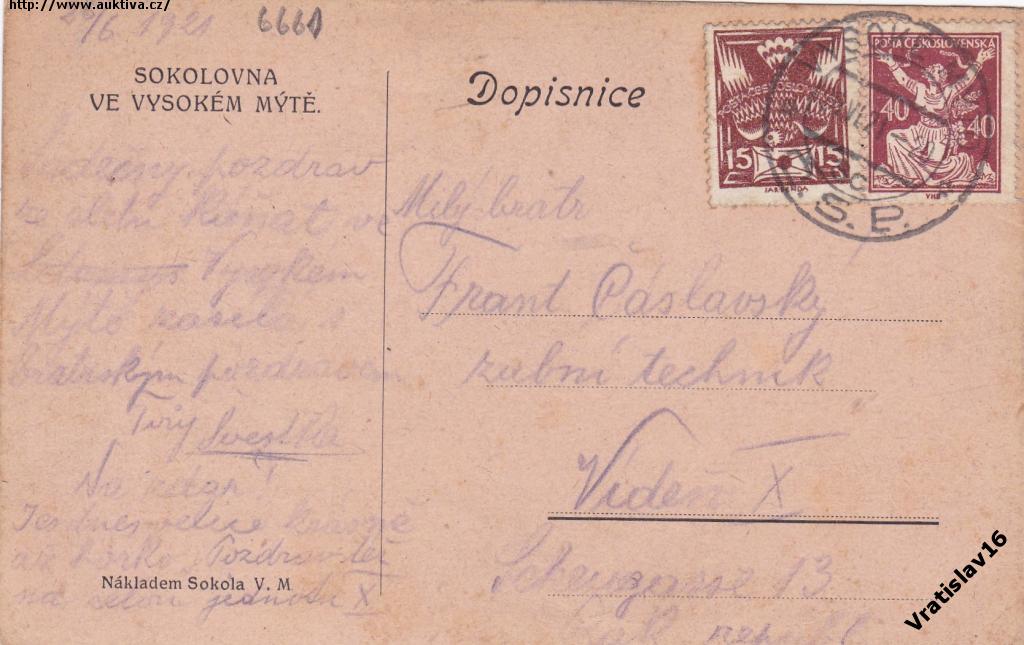 http://www.auktiva.cz/
29/6 1921
6661
SOKOLOVNA
VE VYSOKÉM MÝTĚ.
Dopisnice
POŠTA ČESKOSLOVENSKÁ
15 15
40 40
S. P.
Srdečný pozdrav
ve
Vysokém
Mýtě zasílá s
bratrským pozdravem
Tvůj Švestka
Na zdar!
Jest dnes velice krásně
až horko. Pozdrav též
na celou jednotu X
Nákladem Sokola V. M
Milý bratr
Frant Čáslavský
zubní technik
Vídeň X
13
Vratislav16